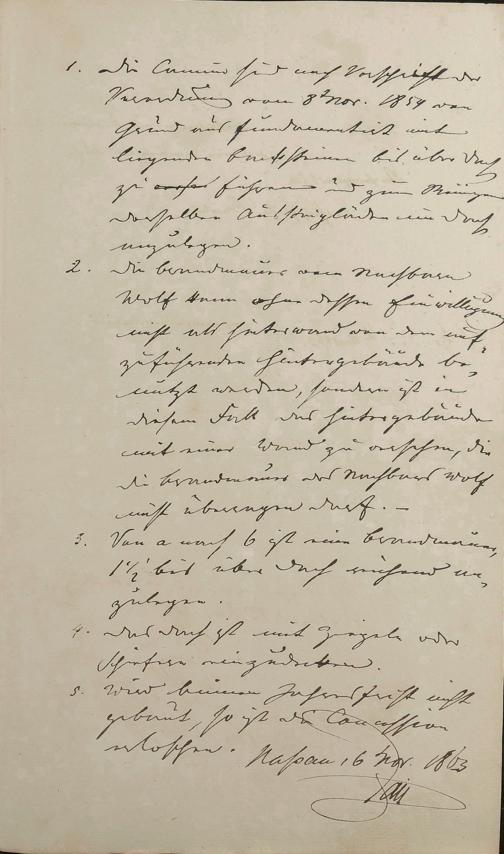 1. Die Camine sind nach Vorschrift der
Verordnung vom 8t Nov. 1859 von
Grund aus fundamentirt mit
liegenden Backsteinen bis über Dach
zu führen und zum Reinigen
derselben Aussteigläden im Dach
anzulegen.
2. Die Brandmauer vom Nachbarn
Wolf kann ohne dessen Einwilligung
nicht als Hinterwand von dem auf-
zuführenden Hintergebäude be-
nutzt werden, sondern ist in
diesem Fall das Hintergebäude
mit einer Wand zu versehen, die
die Brandmauer des Nachbars Wolf
nicht überragen darf. —
3. Von a nach b ist eine Brandmauer,
1 1/2' bis über Dach reichend an-
zulegen.
4. Das Dach ist mit Ziegeln oder
Schiefern einzudecken.
5. Wird binnen Jahresfrist nicht
gebaut, so ist die Concession
erloschen.
Nassau, 16 Nov. 1863